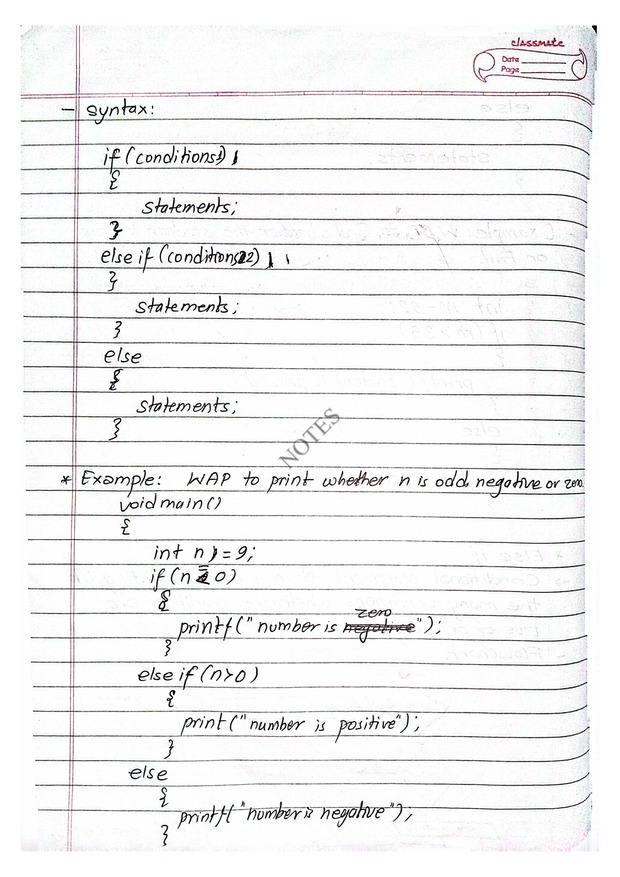 classmate
Date
Page
- Syntax:
if (conditions1)
{
statements;
}
else if (conditions2)
}
statements;
}
else
{
statements;
}
NOTES
* Example: WAP to print whether n is odd, negative or zero
void main()
{
int n = 9;
if (n = 0)
{
zero
printf("number is negative");
}
else if (n>0)
{
print("number is positive");
}
else
{
printf("number is negative");
}